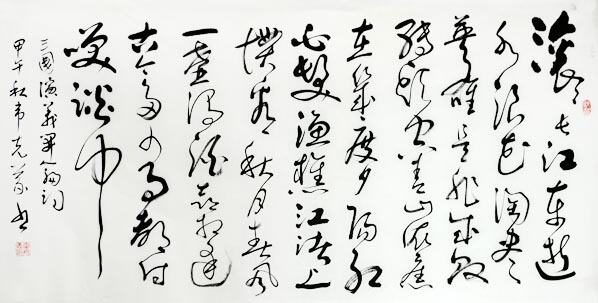 滚滚长江东逝
水浪花淘尽
英雄是非成败
转头空青山依旧
在几度夕阳红
白发渔樵江渚上
惯看秋月春风
一壶浊酒喜相逢
古今多少事都付
笑谈中
三國演义开篇词
甲午秋韦克义书